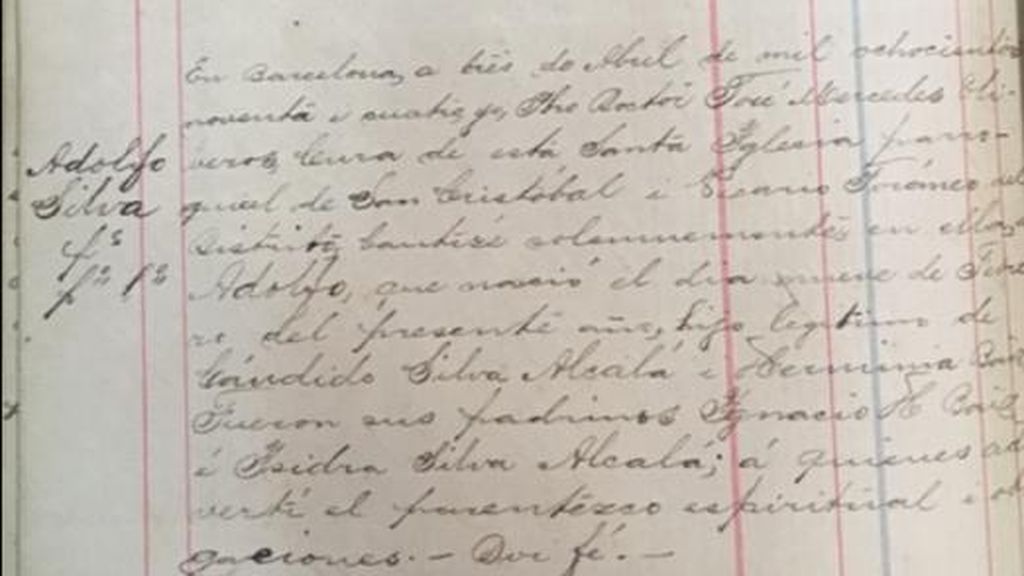 En Barcelona, a trés de Abril de mil ochocientos
noventa i cuatro yo, Pbro Doctor José Mercedes Oli-
Adolfo
veros, Cura de está Santa Yglesia parro-
Silva
quial de San Cristóbal i Vicario Foráneo del
distrito, bauticé solemnemente en ella,
Adolfo, que nació el dia nueve de Ene
ro del presente año, hijo legitimo de
Cándido Silva Alcalá i Herminia
Fueron sus padrinos Ygnacio H
é Ysidra Silva Alcalá; á quienes ad
vertí el parentezco espiritual i obli
gaciones. — Doi fé. —